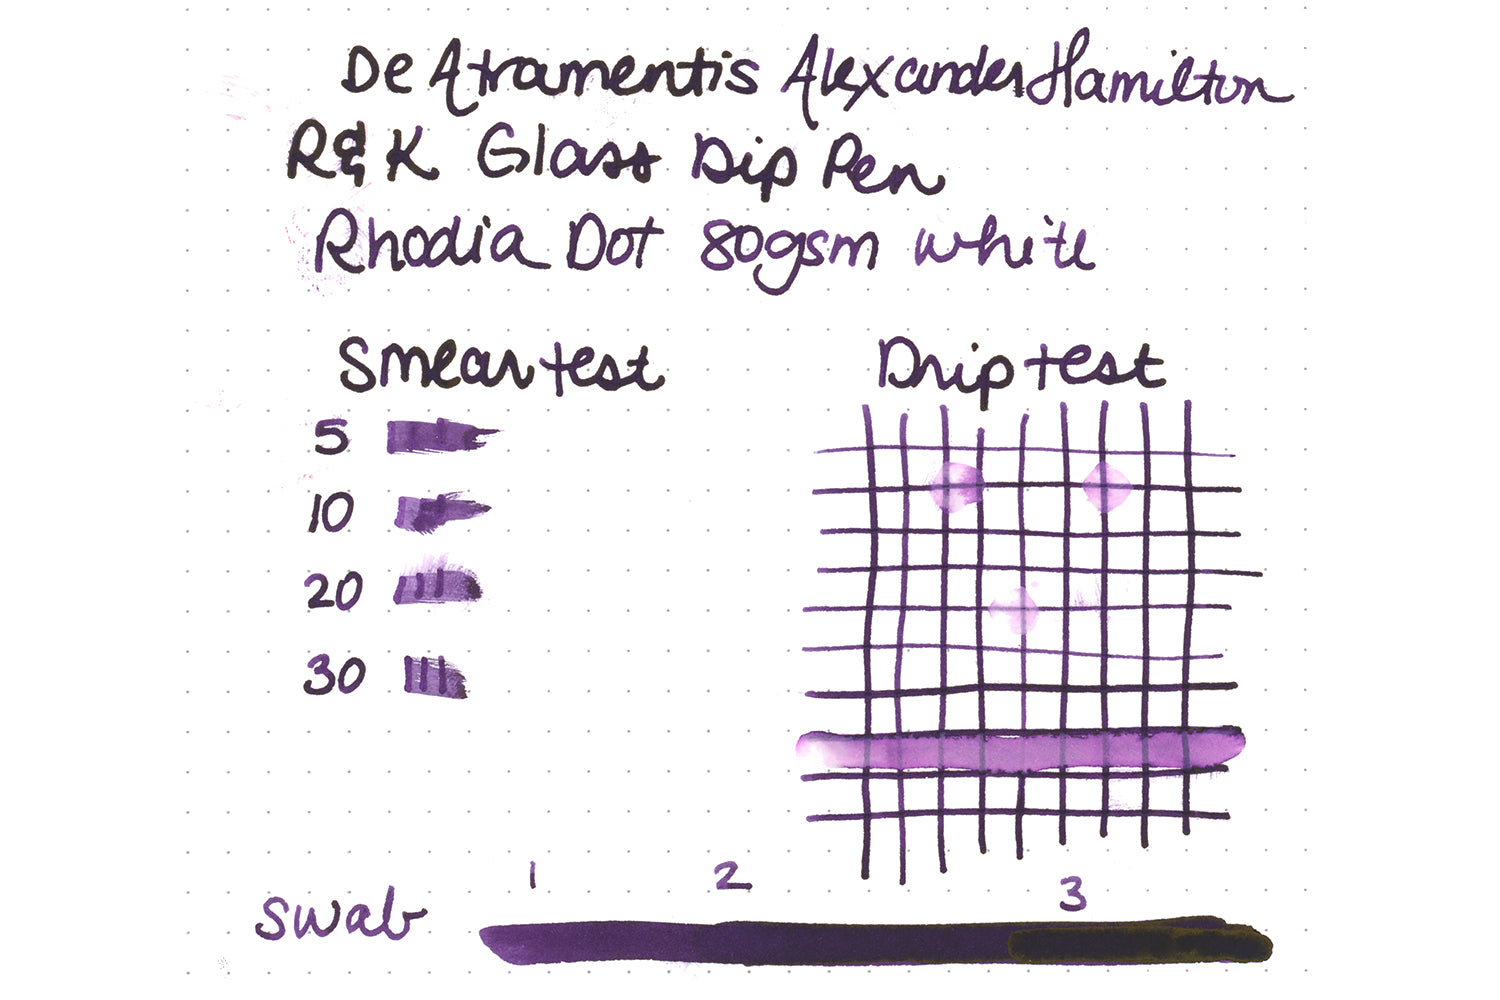 De Atramentis Alexander Hamilton
R&K Glass Dip Pen
Rhodia Dot 80gsm white
Smear test
Drip test
5
10
20
30
1 2 3
Swab